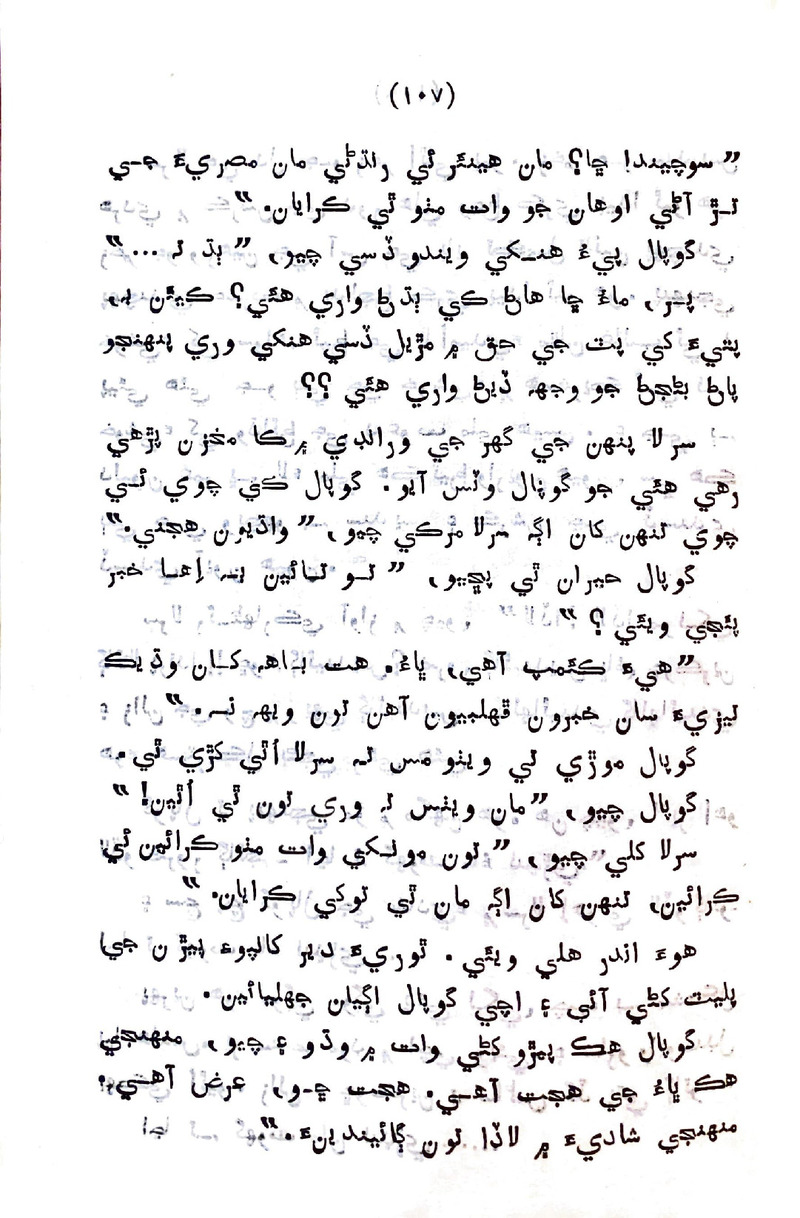 (۱۰۷)
”سوچيندا ڇا؟ مان هينئر ئي رانڌڻي مان مصريءَ جي
تر آڻي اوهان جو وات مٺو ٿي ڪرايان.“
گوپال پيءُ هنکي ويندو ڏسي چيو، ”ٻڌ ته ...“
پر، ماءُ ڇا هاڻ ڪي ٻڌڻ واري هئي؟ ڪيئن به،
پٽيءَ کي پٽ جي حق ۾ مڙيل ڏسي هنکي وري پنهنجو
پاڻ بڻجڻ جو وجهه ڏيڻ واري هئي ؟؟
سرلا پنهن جي گهر جي ورانڊي ۾ ڪا مخزن پڙهي
رهي هئي جو گوپال وٽس آيو. گوپال ڪي چوي ئي
چوي تنهن کان اڳه سرلا مرڪي چيو، ”واڌيون هجني.“
گوپال حيران ٿي پڇيو، ”تو تائين به اِها خبر
پئجي ويئي ؟“
”هيءَ ڪئمپ آهي، ڀاءُ. هت باهه کان وڌيڪ
تيزيءَ سان خبرون ڦهلبيون آهن تون ويهه نه.“
گوپال موڙي تي ويٺو مس ته سرلا اُٿي کڙي ٿي.
گوپال چيو، ”مان ويٺس ته وري تون ٿي اُٿين!“
سرلا کلي چيو، ”تون مونکي وات مٺو ڪرائين ئي
ڪرائين، تنهن کان اڳه مان ٿي توکي ڪرايان.“
هوءَ اندر هلي ويئي. ٿوريءَ دير کانپوءِ پيڙن جي
پليٽ کڻي آئي ۽ اچي گوپال اڳيان جهليائين.
گوپال هڪ پيڙو کڻي وات ۾ وڌو ۽ چيو، منهنجي
هڪ ڀاءُ جي هجت آهي. هجت ڇو، عرض آهي؛
منهنجي شاديءَ ۾ لاڏا تون ڳائيندينءَ.“